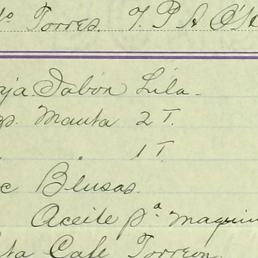 Torres. T. P A O'
ja Jabón Lila.
p. Manta 2 T.
1 T.
c Blusas
Aceite pª maquin
ta Cafe Torreon